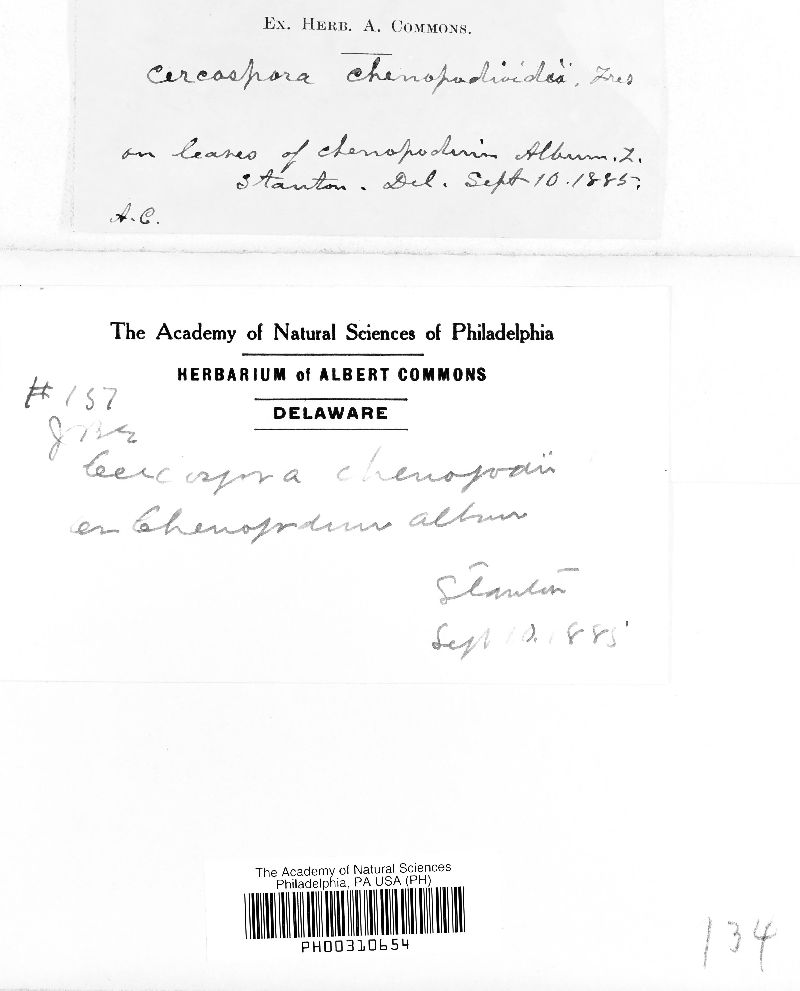 Ex. Herb. A. Commons.
Cercospora chenopodioideä, Fres
on leaves of chenopodium Album. L.
Stanton. Del. Sept 10. 1885.
A.C.
The Academy of Natural Sciences of Philadelphia
HERBARIUM of ALBERT COMMONS
DELAWARE
# 157
Cercospora chenopodii
on Chenopodium album
Stanton
Sept 10. 1885
The Academy of Natural Sciences
Philadelphia, PA USA (PH)
PH00310654
134